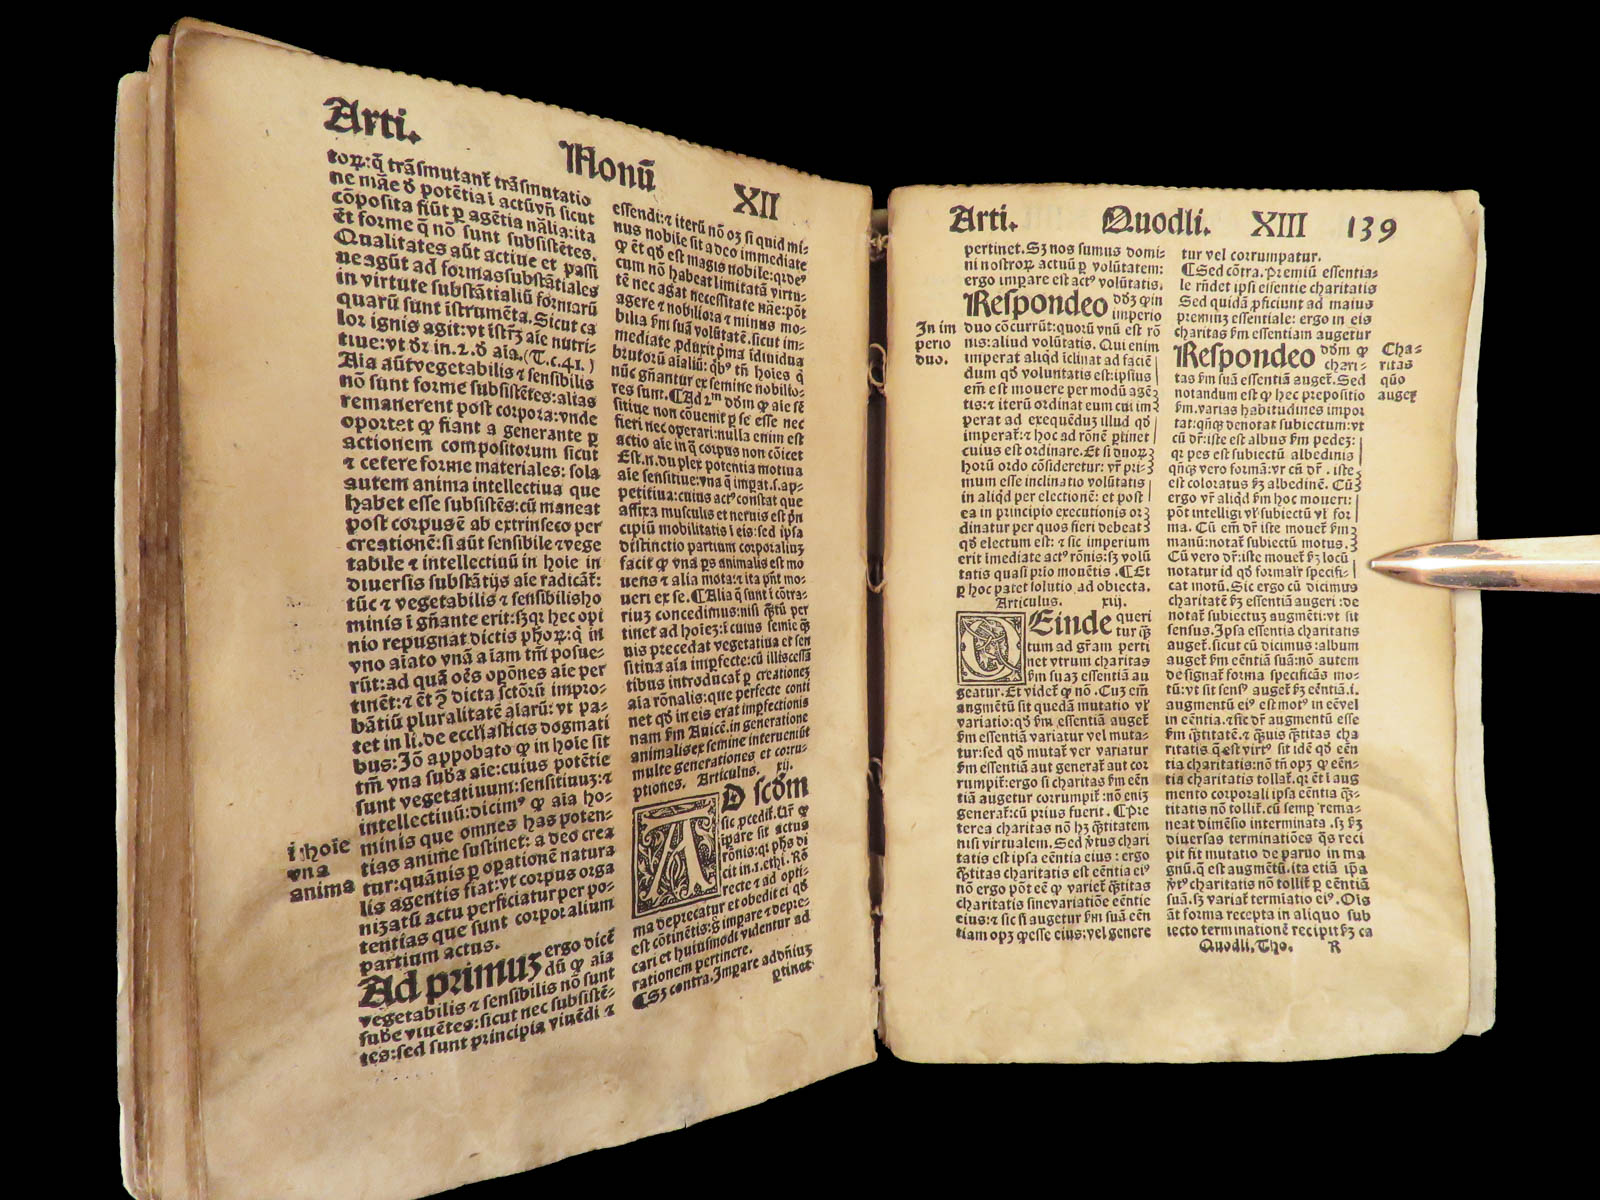 Arti.
Monū
XII
torꝝ:q̄ trāsmutant᷑ trāsmutatio
ne māe ꝺ potētia ī actū:vn̄ sicut
cōposita fiūt ꝑ agētia nālia:ita
ēt forme q̄ nō sunt subsistētes.
Qualitates aūt actiue et passi
ue agūt ad formas substātiales
in virtute substātialiū formarū
quarū sunt īstrumēta. Sicut ca
lor ignis agit:vt īstr̄ aīe nutri-
tiue:vt dr̄ in.2.ꝺ aīa.(T.c.41.)
Aīa aūt vegetabilis ⁊ sensibilis
nō sunt forme subsistētes:alias
remanerent post corpora:vnde
oportet ꝙ fiant a generante ꝑ
actionem compositorum sicut
⁊ cetere forme materiales: sola
autem anima intellectiua que
habet esse subsistēs:cū maneat
post corpus ē ab extrinseco per
creationē:si aūt sensibile ⁊ vege
tabile ⁊ intellectiuū in hoīe in
diuersis substātijs aīe radicāt᷑:
tūc ⁊ vegetabilis ⁊ sensibilis ho
minis ī gn̄ante erit:sꝫ qꝛ hec opi
nio repugnat dictis ph̄orꝝ:q̄ in
vno aīato vnā aīam tm̄ posue-
rūt:ad quā oēs oꝑōnes aīe per
tinēt:⁊ ēt ꝯ̄ dicta sctōrū impro-
bātiū pluralitatē aīarū: vt pa-
tet in li.de ecclīasticis dogmati
bus:Iō appobato ꝙ in hoīe sit
tm̄ vna suba aīe:cuius potētie
sunt vegetatiuum:sensitiuuꝫ:⁊
intellectiuū:dicimꝰ ꝙ aīa ho-
minis que omnes has poten-
tias anime sustinet: a deo crea
tur:quāuis ꝑ oꝑationē natura
lis agentis fiat:vt corpus orga
nizatū actu perficiatur per po-
tentias que sunt corporalium
partium actus.
Ad primuꝫ ergo dicē
dū ꝙ aīa
vegetabilis ⁊ sensibilis nō sunt
sube viuētes:sicut nec subsistē-
tes:sed sunt principia viuēdi ⁊
ī hoīe
vna
anima
essendi:⁊ iterū nō oꝫ si quid mi-
nus nobile sit a deo immediate
ꝙ ēt qđ est magis nobile:qꝛ deꝰ
cum nō habeat limitatā virtu-
tē nec agat necessitate nāe:pōt
agere ⁊ nobiliora ⁊ minus no-
bilia ẜm suā volūtatē.sicut im-
mediate ꝓduxit pͥma īdiuidua
brutorū aīaliū:qͥbꝰ tn̄ hoīes q̄
nūc gn̄antur ex semine nobilio-
res sunt.¶Ad 2ᵐ ꝺꝺm ꝙ aīe sē
sitiue non cōuenit ꝑ se esse nec
fieri nec operari:nulla enim est
actio aīe in q̄ corpus non cōicet
Est.n.duplex potentia motiua
aīe sensitiue:vna q̄ imꝑat.s.ap-
petitiua:cuius actꝰ constat que
affixa musculis et neruis est pn̄
cipiū mobilitatis ī eis:sed ipsa
distinctio partium corporaliuꝫ
facit ꝙ vna ꝑs animalis est mo
uens ⁊ alia mota:⁊ ita pn̄t mo-
ueri ex se.¶Alia q̄ sunt ī cōtra-
riuꝫ concedimus:nisi qͣtū per
tinet ad hoīeꝫ:ī cuius semīe qͣ
uis precedat vegetatiua et sen
sitiua aīa impfecte:cū illis cessā
tibus introducat᷑ ꝑ creationeꝫ
aīa rōnalis:que perfecte conti
net qđ in eis erat imꝑfectionis
nam ẜm Auicē.in generatione
animalis ex semine interueniūt
multe generationes et corru-
ptiones. Articulus. xij.
AD scđm
sic ꝓcedit᷑. Ur̄ ꝙ
īpare sit actus
rōnis:qꝛ phs di
cit in.1.ethi. Rō
recte ⁊ ad opti-
ma deprecatur et obedit ei qđ
est cōtinētis:ḡ impare ⁊ depre-
cari et huiusmodi videntur ad
rationem pertinere.
¶Sꝫ contra.Impare ad oīuꝫ
ꝑtinet
Arti. Quodli. XIII 139
pertinet. Sꝫ nos sumus domi-
ni nostroꝝ actuū ꝑ volūtatem:
ergo impare est actꝰ volūtatis.
Respondeo ꝺꝺꝫ ꝙ in
imperio
duo cōcurrūt:quorū vnū est rō
nis:aliud volūtatis. Qui enim
imperat aliqđ īclinat ad faciē
dum qđ voluntatis est:ipsius
em̄ est mouere per modū agē
tis:⁊ iterū ordinat eum cui im
perat ad exequēduꝫ illud qđ
imperat᷑:⁊ hoc ad rōnē ꝑtinet
cuius est ordinare. Et si duorꝫ
horū ordo cōsideretur: vr̄ pri-
mum esse inclinatio volūtatis
in aliqđ per electionē: et post
ea in principio executionis or
dinatur per quos fieri debeat
qđ electum est: ⁊ sic imperium
erit imediate actꝰ rōnis:sꝫ volū
tatis quasi prīo mouētis .¶Et
ꝑ hoc patet solutio ad obiecta.
Articulus. xiij.
DEinde queri
tur qͣ
tum ad gr̄am perti
net vtrum charitas
ẜm suaꝫ essentiā au
geatur. Et videt᷑ ꝙ nō. Cuꝫ em̄
augmētū sit quedā mutatio vl᷑
variatio:qđ ẜm essentiā auget᷑
ẜm essentiā variatur vel muta-
tur:sed qđ mutat᷑ ver variatur
ẜm essentiā aut generat᷑ aut cor
rumpit᷑: ergo si charitas ẜm eēn
tiā augetur corrumpit᷑ :nō eniꝫ
generat᷑:cū prius fuerit. ¶Pre
terea charitas nō hꝫ qͣtitatem
nisi virtualem. Sed vͥtus chari
tatis est ipsa eēntia eius : ergo
qͣtitas charitatis est eēntia eiꝰ
nō ergo pōt eē ꝙ variet᷑ qͣtitas
charitatis sine variatiōe eēntie
eius:⁊ sic si augetur ẜm suā eēn
tiam opꝫ ꝙ esse eius:vel genere
In im
perio
duo.
tur vel corrumpatur.
¶Sed cōtra. Premiū essentia-
le rn̄det ipsi essentie charitatis
Sed quidā ꝓficiunt ad maius
premiuꝫ essentiale: ergo in eis
charitas ẜm essentiam augetur
Respondeo ꝺꝺm ꝙ
chari-
tas ẜm suā essentiā auget᷑. Sed
notandum est ꝙ hec prepositio
ẜm.varias habitudines impor
tat:qn̄qꝫ denotat subiectum:vt
cū dr̄:iste est albus ẜm pedeꝫ:
qꝛ pes est subiectū albedinis
qn̄qꝫ vero formā:vt cū dr̄ . iste
est coloratus ẜꝫ albedinē. Cū
ergo vr̄ aliqđ ẜm hoc moueri:
pōt intelligi vl᷑ subiectū vl᷑ for
ma. Cū em̄ dr̄ iste mouet᷑ ẜm
manū:notat᷑ subiectū motus.
Cū vero dr̄:iste mouet᷑ ẜꝫ locū
notatur id qđ formalr̄ specifi-
cat motū. Sic ergo cū dicimus
charitatē ẜꝫ essentiā augeri :de
notat᷑ subiectuꝫ augmēti:vt sit
sensus. Ipsa essentia charitatis
auget᷑.sicut cū dicimus:album
auget᷑ ẜm eēntiā suā:nō autem
designat᷑ forma specificās mo-
tū:vt sit sensꝰ auget᷑ ẜꝫ eēntiā.i.
augmentū eiꝰ est motꝰ in eē vel
in eēntia.⁊ sic dr̄ augmentū esse
ẜm qͣtitatē.⁊ qͣuis qͣtitas cha
ritatis q̄ est virtꝰ sit idē qđ eēn
tia charitatis:nō tn̄ opꝫ ꝙ eēn-
tia charitatis tollat᷑.qꝛ ēt ī aug
mento corporali ipsa eēntia qͣ-
titatis nō tollit᷑.cū semꝑ rema-
neat dimēsio interminata .sꝫ ẜꝫ
diuersas terminatiōes qͣs reci
pit fit mutatio de paruo in ma
gnū.q̄ est augmētū.ita etiā ipa
vͥtꝰ charitatis nō tollit᷑ ꝑ eēntiā
suā.sꝫ variat᷑ termiatio eiꝰ. Oīs
āt forma recepta in aliquo sub
iecto terminationē recipit ẜꝫ ca
Cha-
ritas
quō
auget᷑
Quodli. Tho. R